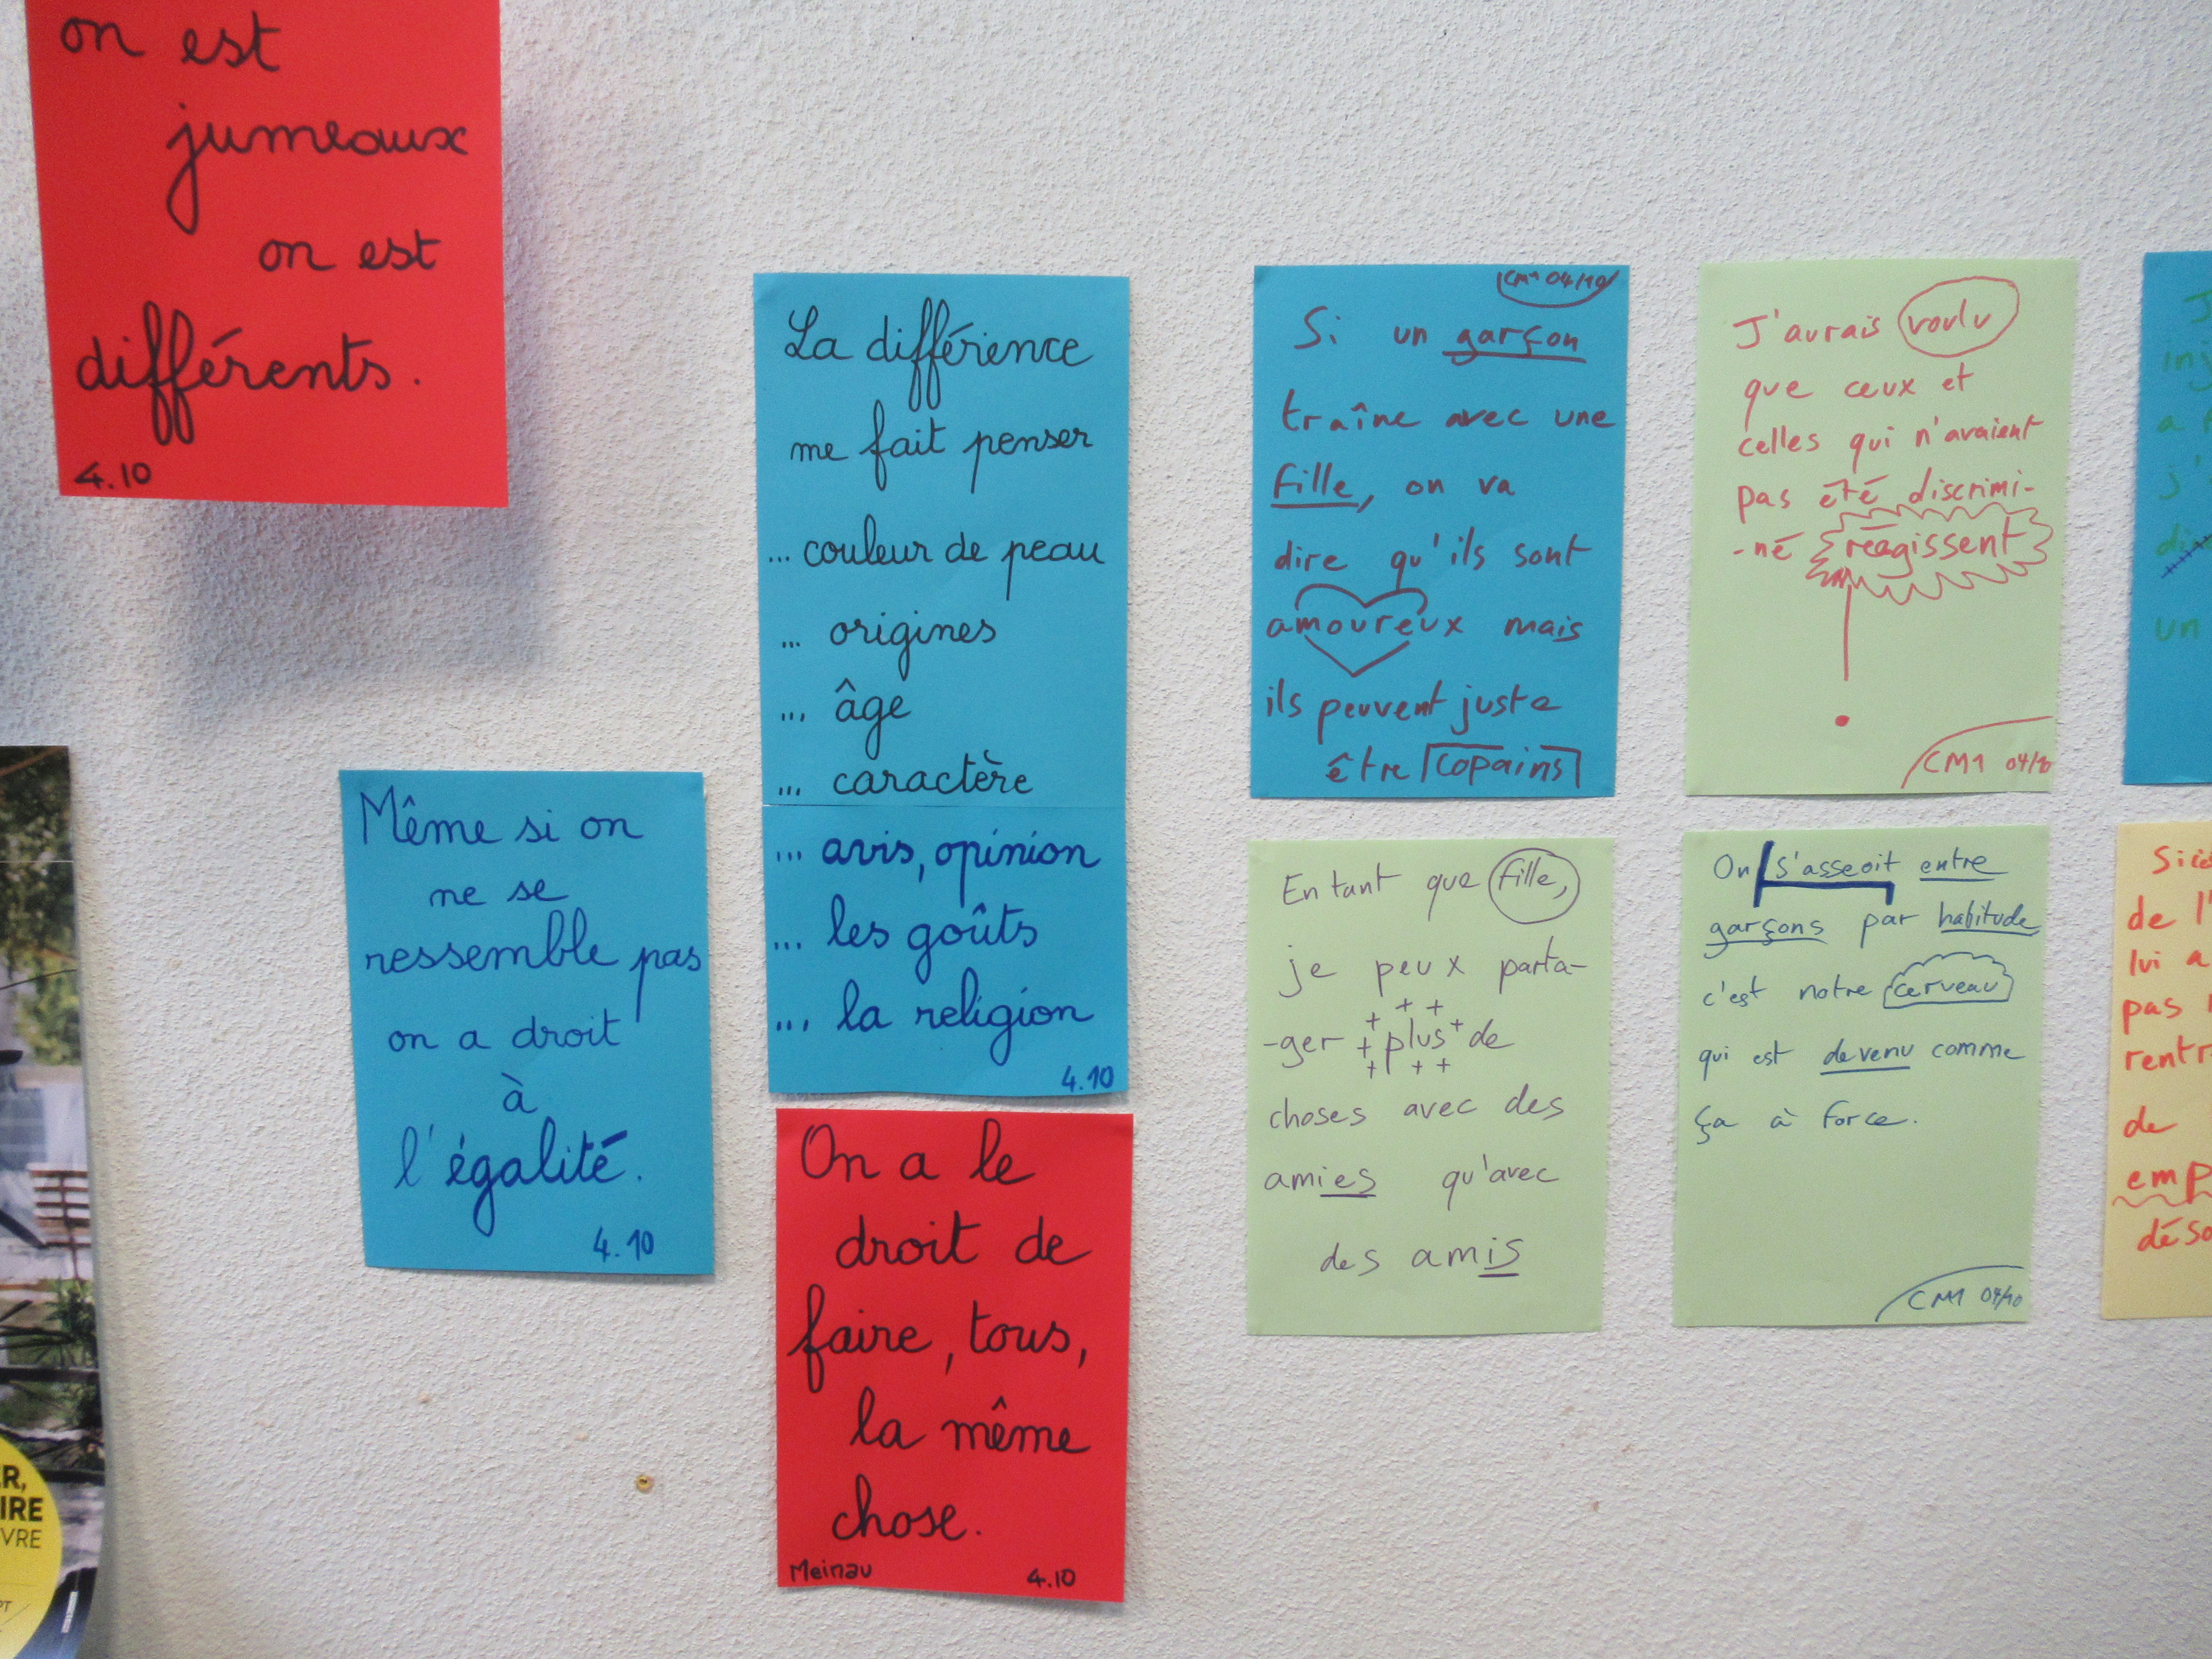 on est
jumeaux
on est
différents.
4.10
Même si on
ne se
ressemble pas
on a droit
à
l'égalité.
4.10
La différence
me fait penser
... couleur de peau
... origines
... âge
... caractère
... avis, opinion
... les goûts
... la religion
4.10
On a le
droit de
faire, tous,
la même
chose.
Meinau 4.10
CM1 04/10
Si un garçon
traîne avec une
fille, on va
dire qu'ils sont
amoureux mais
ils peuvent juste
être copains
En tant que fille,
je peux parta-
-ger plus de
choses avec des
amies qu'avec
des amis
J'aurais voulu
que ceux et
celles qui n'avaient
pas été discrimi-
-né réagissent
CM1 04/10
On s'asseoit entre
garçons par habitude
c'est notre cerveau
qui est devenu comme
ça à force.
CM1 04/10
un
de l'
lui a
pas
rentr
de
emp
déso
R,
IRE
VRE